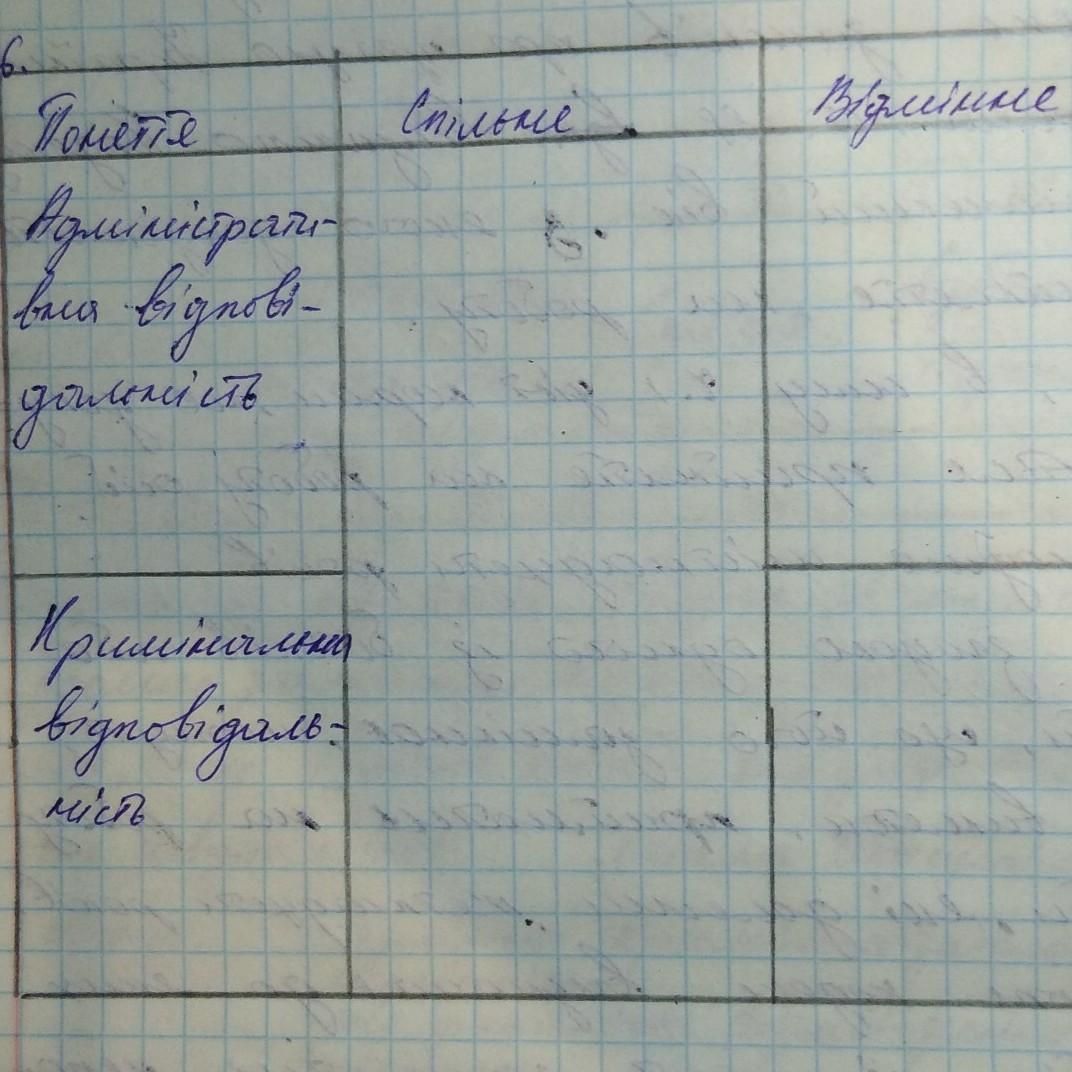 6.
Поняття Спільне Відмінне
Адміністрати-
вна відпові-
дальність
Кримінальна
відповідаль-
ність